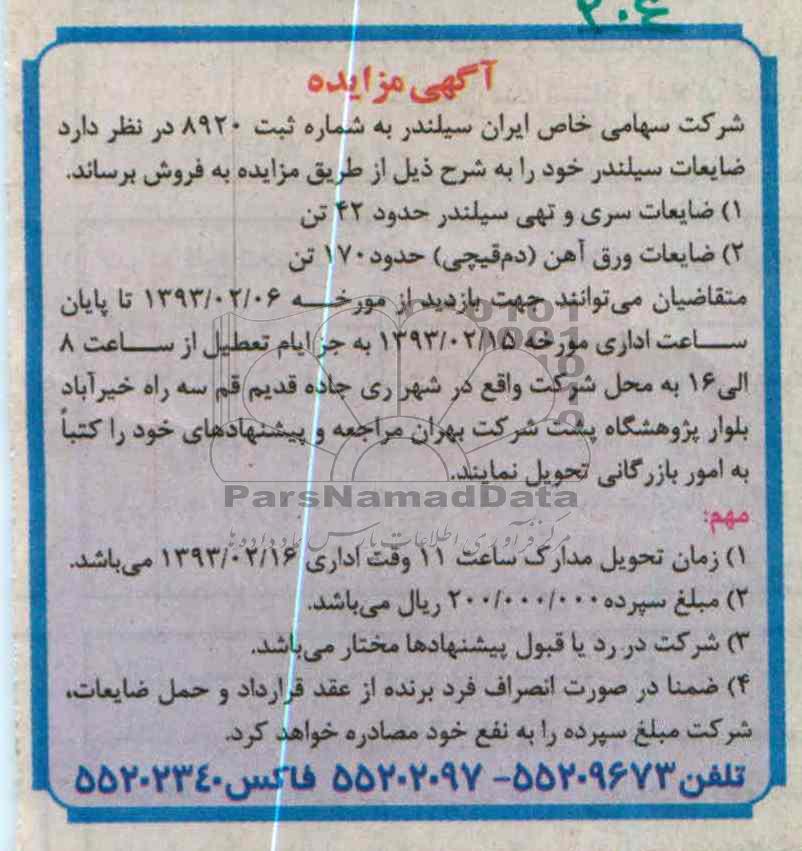 ۲۰۶
آگهی مزایده
شرکت سهامی خاص ایران سیلندر به شماره ثبت ۸۹۲۰ در نظر دارد
ضایعات سیلندر خود را به شرح ذیل از طریق مزایده به فروش برساند.
۱) ضایعات سری و تهی سیلندر حدود ۴۲ تن
۲) ضایعات ورق آهن (دم‌قیچی) حدود۱۷۰ تن
متقاضیان می‌توانند جهت بازدید از مورخه ۱۳۹۳/۰۲/۰۶ تا پایان
ساعت اداری مورخه ۱۳۹۳/۰۲/۱۵ به جز ایام تعطیل از ساعت ۸
الی۱۶ به محل شرکت واقع در شهر ری جاده قدیم قم سه راه خیرآباد
بلوار پژوهشگاه پشت شرکت بهران مراجعه و پیشنهادهای خود را کتباً
به امور بازرگانی تحویل نمایند.
ParsNamadData
مرکز فرآوری اطلاعات پارس نماد داده‌ها
مهم:
۱) زمان تحویل مدارک ساعت ۱۱ وقت اداری ۱۳۹۳/۰۲/۱۶ می‌باشد.
۲) مبلغ سپرده۲۰۰/۰۰۰/۰۰۰ ریال می‌باشد.
۳) شرکت در رد یا قبول پیشنهادها مختار می‌باشد.
۴) ضمنا در صورت انصراف فرد برنده از عقد قرارداد و حمل ضایعات،
شرکت مبلغ سپرده را به نفع خود مصادره خواهد کرد.
تلفن۵۵۲۰۹۶۷۳- ۵۵۲۰۲۰۹۷ فاکس۵۵۲۰۲۳۴۰